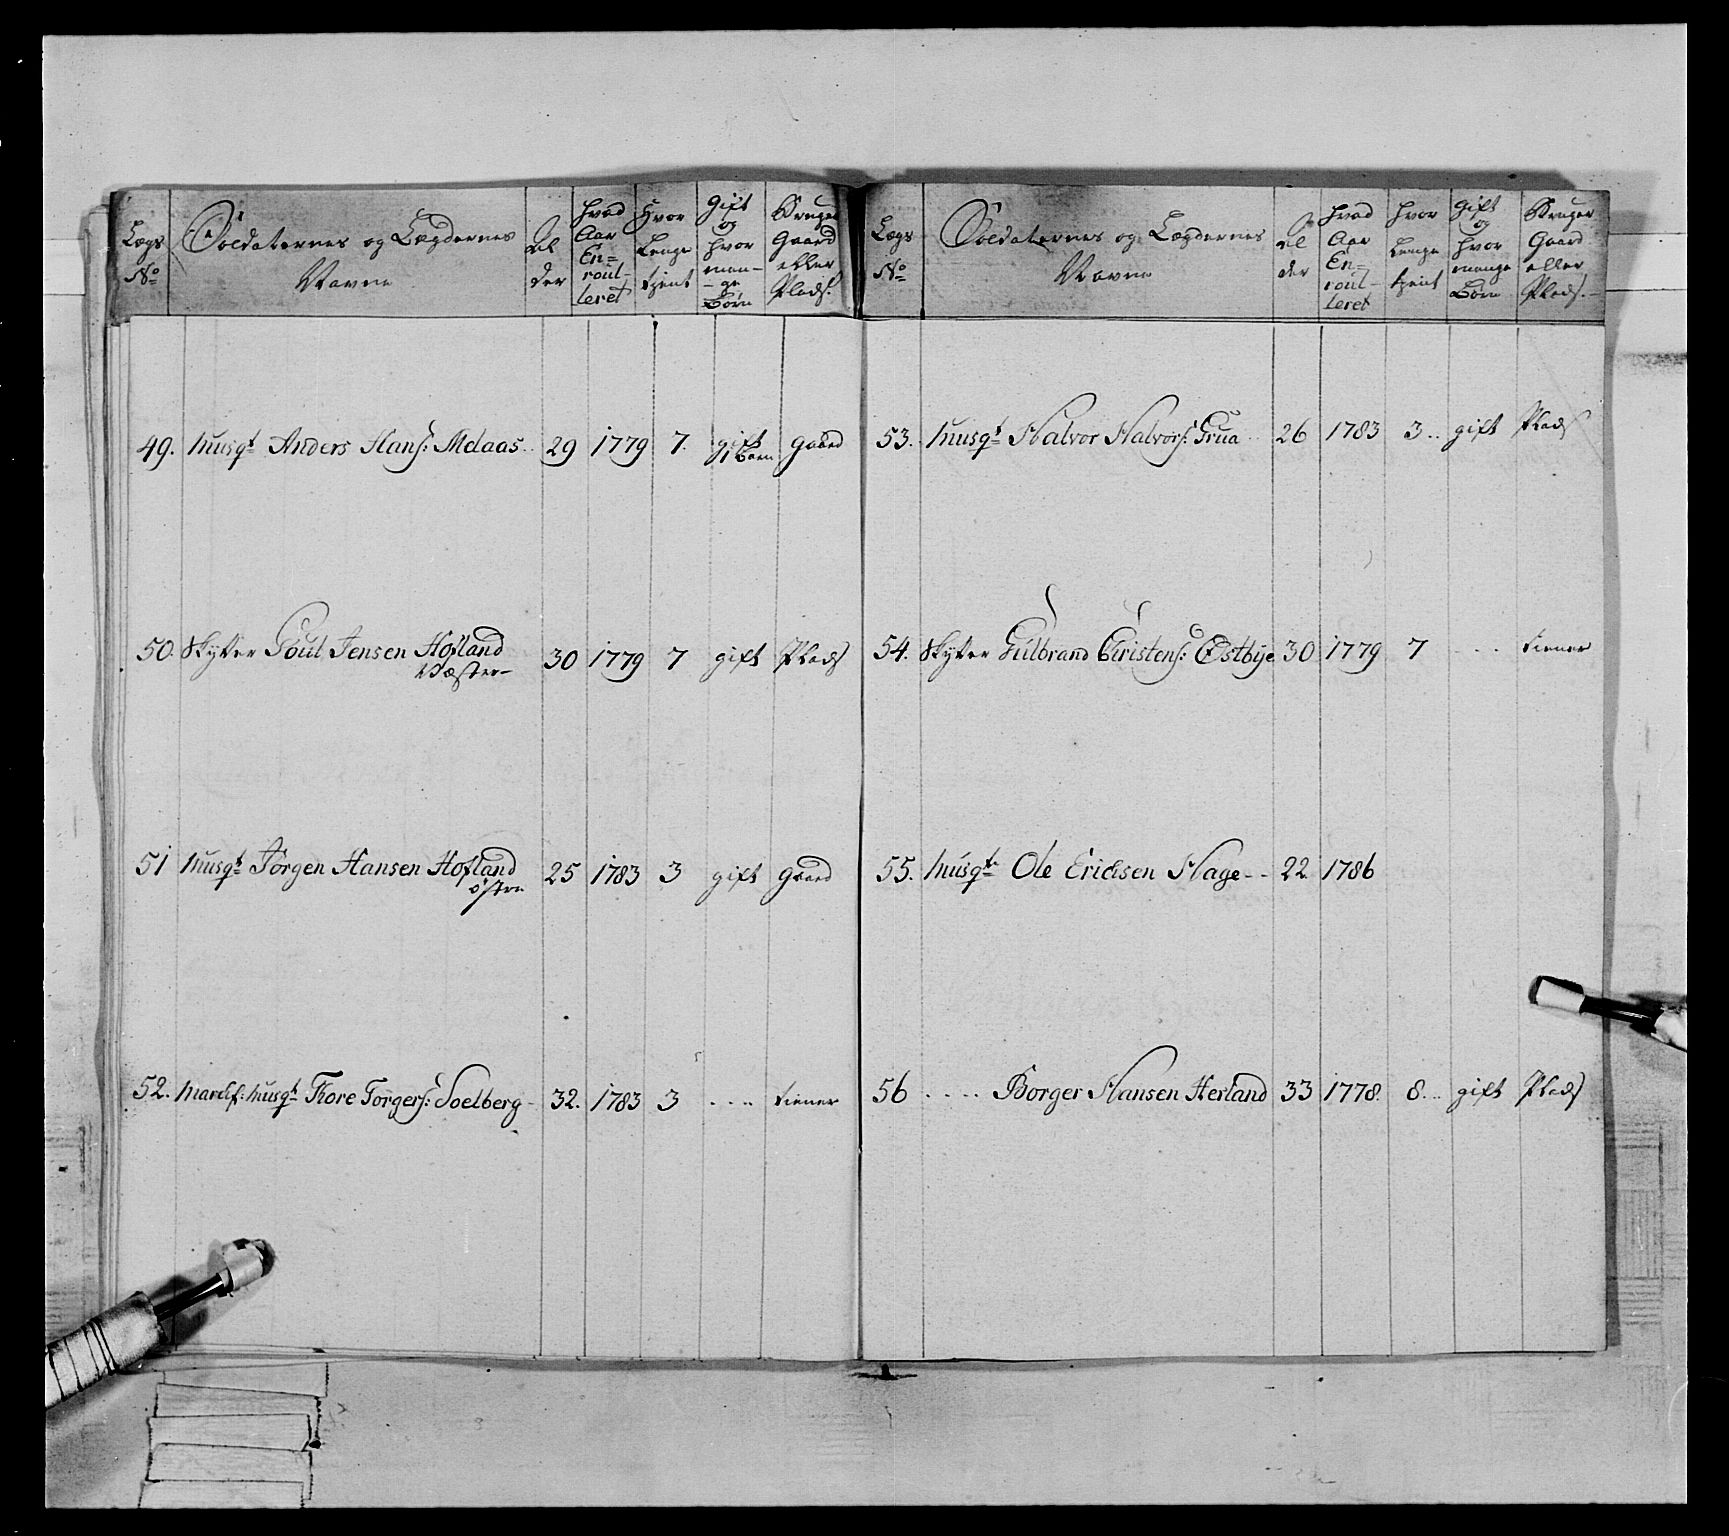 Lægs No
Soldaternes og Lægdernes Navne
Alder
hvad Aar En=roul-leret
Hvor Lenge tient
gift og hvor man-ge Børn
Bruger Gaard eller Plads.
49. Musqt Anders Hans: Melaas 29 1779 7. gift 1 Barn gaard
50. Skytter Poul Jensen Hofland 30 1779 7 gift Plads
Væster-
51 Musqt Jörgen Hansen Hofland 25 1783 3 gift gaard
østre
52. Musqt Thore Torgers: Soelberg 32. 1783 3 .... tiener
Lægs No
Soldaternes og Lægdernes Navne
Alder
hvad Aar En=roul-leret
hvor Lenge tient
gift og hvor mange Børn
Bruger Gaard eller Plads.
53. Musqt Halvor Halvors: Grua 26 1783 3.. gift Plads
54. Skytter Gulbrand Christens: Östbÿe 30 1779 7 ... tiener
55. Musqt Ole Ericksen Hage-- 22 1786
56 .... Borger Hansen Herland 33 1778. 8... gift Plads